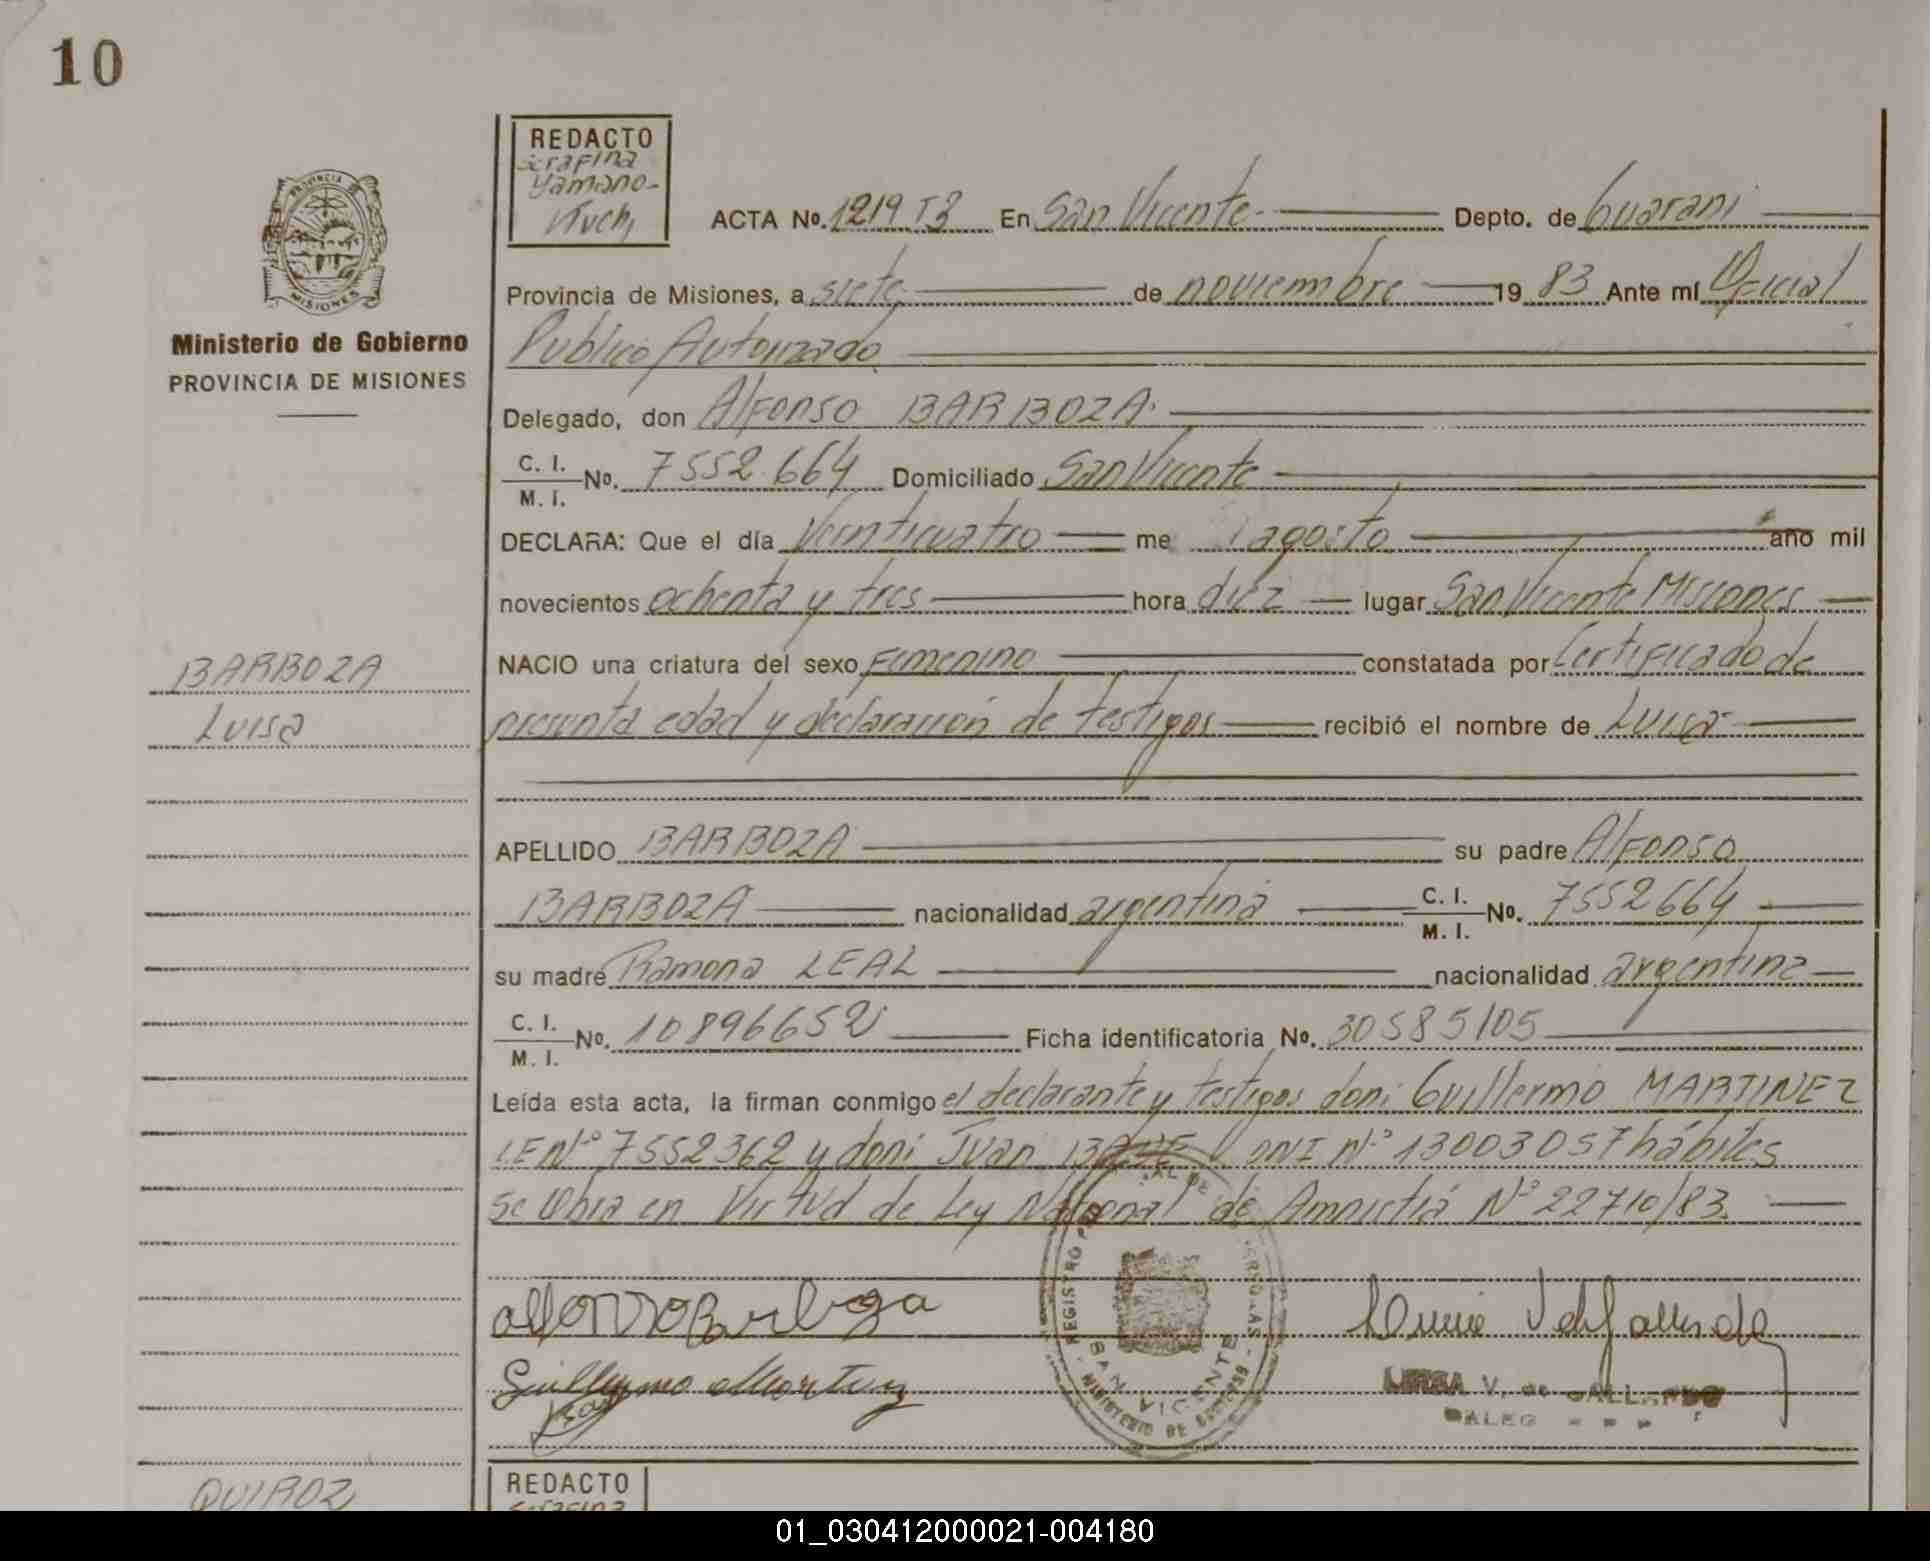 10
REDACTO
Serafina
Yamano-
ACTA No. 1219 T3 En San Vicente- Depto. de Guarani
PROVINCIA DE
MISIONES
Provincia de Misiones, a siete de noviembre 19 83 Ante mí Oficial
Ministerio de Gobierno
PROVINCIA DE MISIONES
Publico Autorizado
Delegado, don Alfonso BARBOZA.
C. I.
M. I. No. 7552.664 Domiciliado San Vicente
DECLARA: Que el día Veinticuatro me agosto año mil
novecientos ochenta y tres hora diez lugar San Vicente Misiones
NACIO una criatura del sexo Femenino constatada por Certificado de
BARBOZA
Luisa
presunta edad y declaración de testigos recibió el nombre de Luisa-
APELLIDO BARBOZA su padre Alfonso
BARBOZA nacionalidad argentina C. I.
M. I. No. 7552664
su madre Ramona LEAL nacionalidad argentina
C. I.
M. I. No. 10896652 Ficha identificatoria No. 30585105
Leída esta acta, la firman conmigo el declarante y testigos don: Guillermo MARTINEZ
LE Nº 7552362 y don: Juan DNI Nº 13003057 hábiles
se labra en Virtud de Ley Nacional de Amnistia Nº 22710/83.
Alfonso Barboza
Guillermo Martinez
REGISTRO
SAN VICENTE
MINISTERIO DE GOBIERNO
V. de GALLARDO
QUIROZ
REDACTO
Serafina
01_030412000021-004180